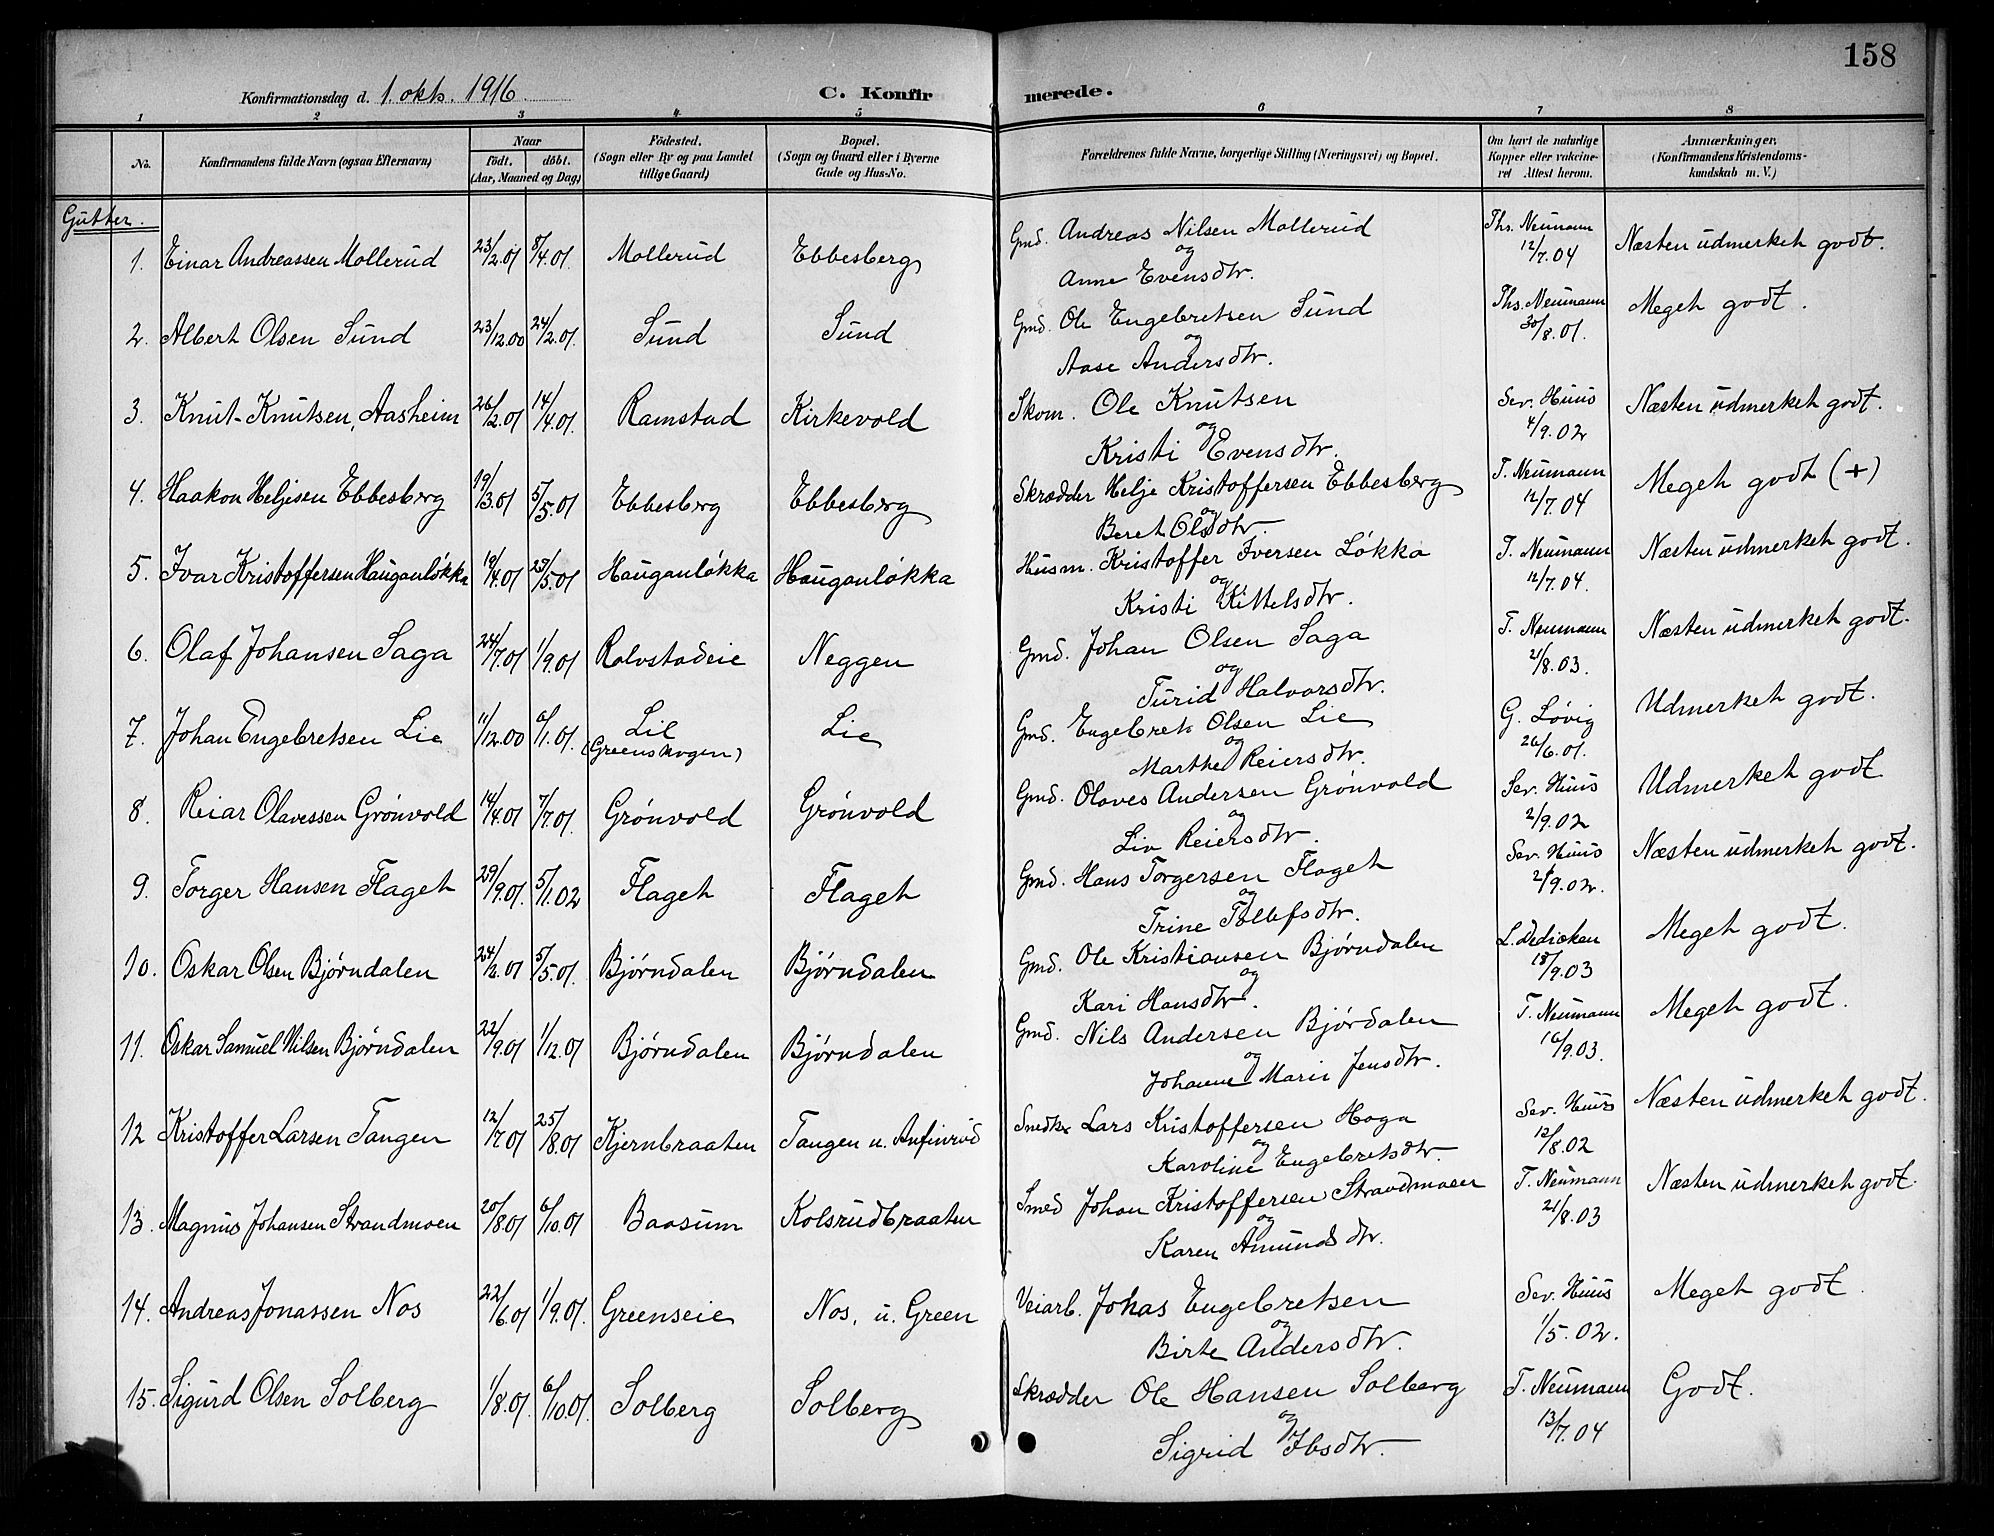 158
Konfirmationsdag d. 1. okt. 1916 C. Konfirmerede.
1 2 3 4 5 6 7 8
No.
Konfirmandens fulde Navn (ogsaa Efternavn)
Naar
født. døbt.
(Aar, Maaned og Dag)
Fødested.
(Sogn eller By og paa Landet
tillige Gaard)
Bopæl.
(Sogn og Gaard eller i Byerne
Gade og Hus-No.
Forældrenes fulde Navne, borgerlige Stilling (Næringsvei) og Bopæl.
Om havt de naturlige
Kopper eller vakcine-
ret Attest herom.
Anmærkninger.
(Konfirmandens Kristendoms-
kundskab m. V.)
Gutter.
1. Einar Andreassen Mollerud 23/2.01 8/4.01. Mollerud Ebbesberg Gmd. Andreas Nilsen Mollerud Ths. Neumann Næsten udmerket godt.
og 12/7.04
Anne Evensdtr.
2. Albert Olsen Sund 23/12.00 24/2.01. Sund Sund Gmd. Ole Engebretsen Sund Ths. Neumann Meget godt.
og 30/8.01.
Aase Andersdtr.
3. Knut Knutsen Aasheim 26/2.01 14/4.01. Ramstad Kirkevold Skom. Ole Knutsen Sev. Huus Næsten udmerket godt.
og 4/9.02
Kristi Evensdtr.
4. Haakon Heljesen Ebbesberg 19/3.01 5/5.01 Ebbesberg Ebbesberg Skrædder Helje Kristoffersen Ebbesberg T. Neumann Meget godt (+)
og 12/7.04
Beret Olsdtr.
5. Ivar Kristoffersen Hauganløkka 18/4.01 25/5.01 Hauganløkka Hauganløkka Husm. Kristoffer Iversen Løkka T. Neumann Næsten udmerket godt.
og 12/7.04.
Kristi Kittelsdtr.
6. Olaf Johansen Saga 24/7.01 1/9.01 Rolvstadeie Neggen Gmd. Johan Olsen Saga T. Neumann Næsten udmerket godt.
og 21/8.03.
Turid Halvorsdtr.
7. Johan Engebretsen Lie 11/12.00 6/1.01. Lie Lie Gmd. Engebret Olsen Lie G. Løvig Udmerket godt.
(Greenskogen) og 26/6.01.
Marthe Reiersdtr.
8. Reiar Olavessen Grønvold 14/4.01 7/7.01. Grønvold Grønvold Gmd. Olaves Andersen Grønvold Sev. Huus Udmerket godt
og 2/9.02
Liv Reiersdtr.
9. Torger Hansen Flaget 29/9.01. 5/1.02 Flaget Flaget Gmd. Hans Torgersen Flaget Sev. Huus Næsten udmerket godt.
og 2/9.02.
Trine Tollefsdtr.
10. Oskar Olsen Bjørndalen 24/2.01 5/5.01. Bjørndalen Bjørndalen Gmd. Ole Kristiansen Bjørndalen L. Dedicken Meget godt.
og 18/9.03
Kari Hansdtr.
11. Oskar Samuel Nilsen Bjørndalen 22/9.01 1/12.01 Bjørndalen Bjørndalen Gmd. Nils Andersen Bjørdalen T. Neumann Meget godt.
og 16/9.03.
Johanne Marie Jensdtr.
12 Kristoffer Larsen Tangen 12/7.01 25/8.01 Kjernbraaten Tangen u. Anfinrud Snedker Lars Kristoffersen Haga Sev. Huus Næsten udmerket godt.
og 12/8.02
Karoline Engebretsdtr.
13. Magnus Johansen Strandmoen 20/8.01 6/10.01 Baasum Kolsrudbraaten Smed Johan Kristoffersen Strandmoen T. Neumann Næsten udmerket godt.
og 21/8.03
Karen Amundsdtr.
14. Andreas Jonassen Nos 22/6.01 1/9.01. Greenseie Nos, u. Green Veiarb. Johas Engebretsen Sev. Huus Meget godt.
og 1/5.02.
Birte Andersdtr.
15. Sigurd Olsen Solberg 1/8.01. 6/10.01. Solberg Solberg Skrædder Ole Hansen Solberg T. Neumann Godt.
og 13/7.04
Sigrid Ibsdtr.